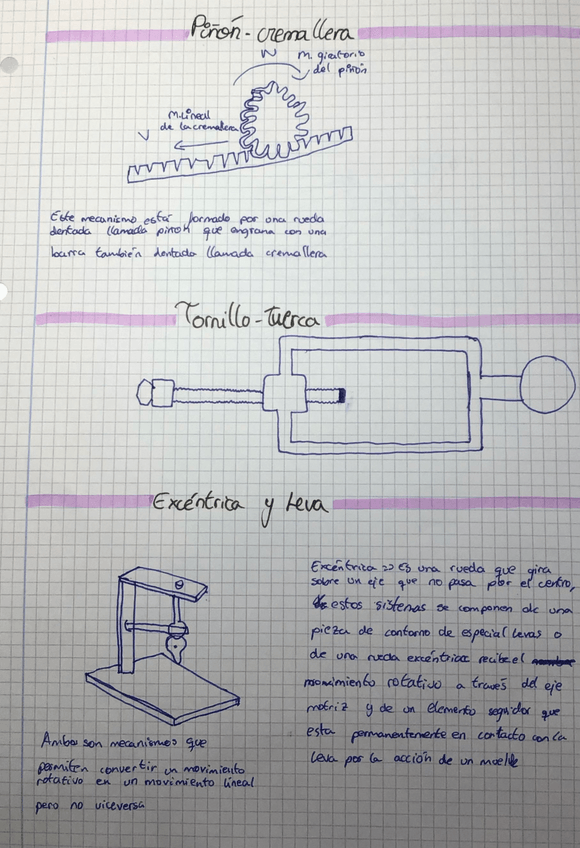 Piñón-cremallera
W
M. giratorio
del piñón
M. Lineal
de la cremallera
V
Este mecanismo estar formado por una rueda
dentada llamada piñon que engrana con una
barra también dentado llamada cremallera
Tornillo-Tuerca
Excéntrica y Leva
Excéntrica => Es una rueda que gira
sobre un eje que no pasa por el centro,
estos sistemas se componen de una
pieza de contorno de especial levas o
de una rueda excéntrica recibe el
movimiento rotativo a través del eje
motriz y de un elemento seguidor que
esta permanentemente en contacto con la
leva por la acción de un muelle
Ambos son mecanismos que
permiten convertir un movimiento
rotativo en un movimiento lineal
pero no viceversa